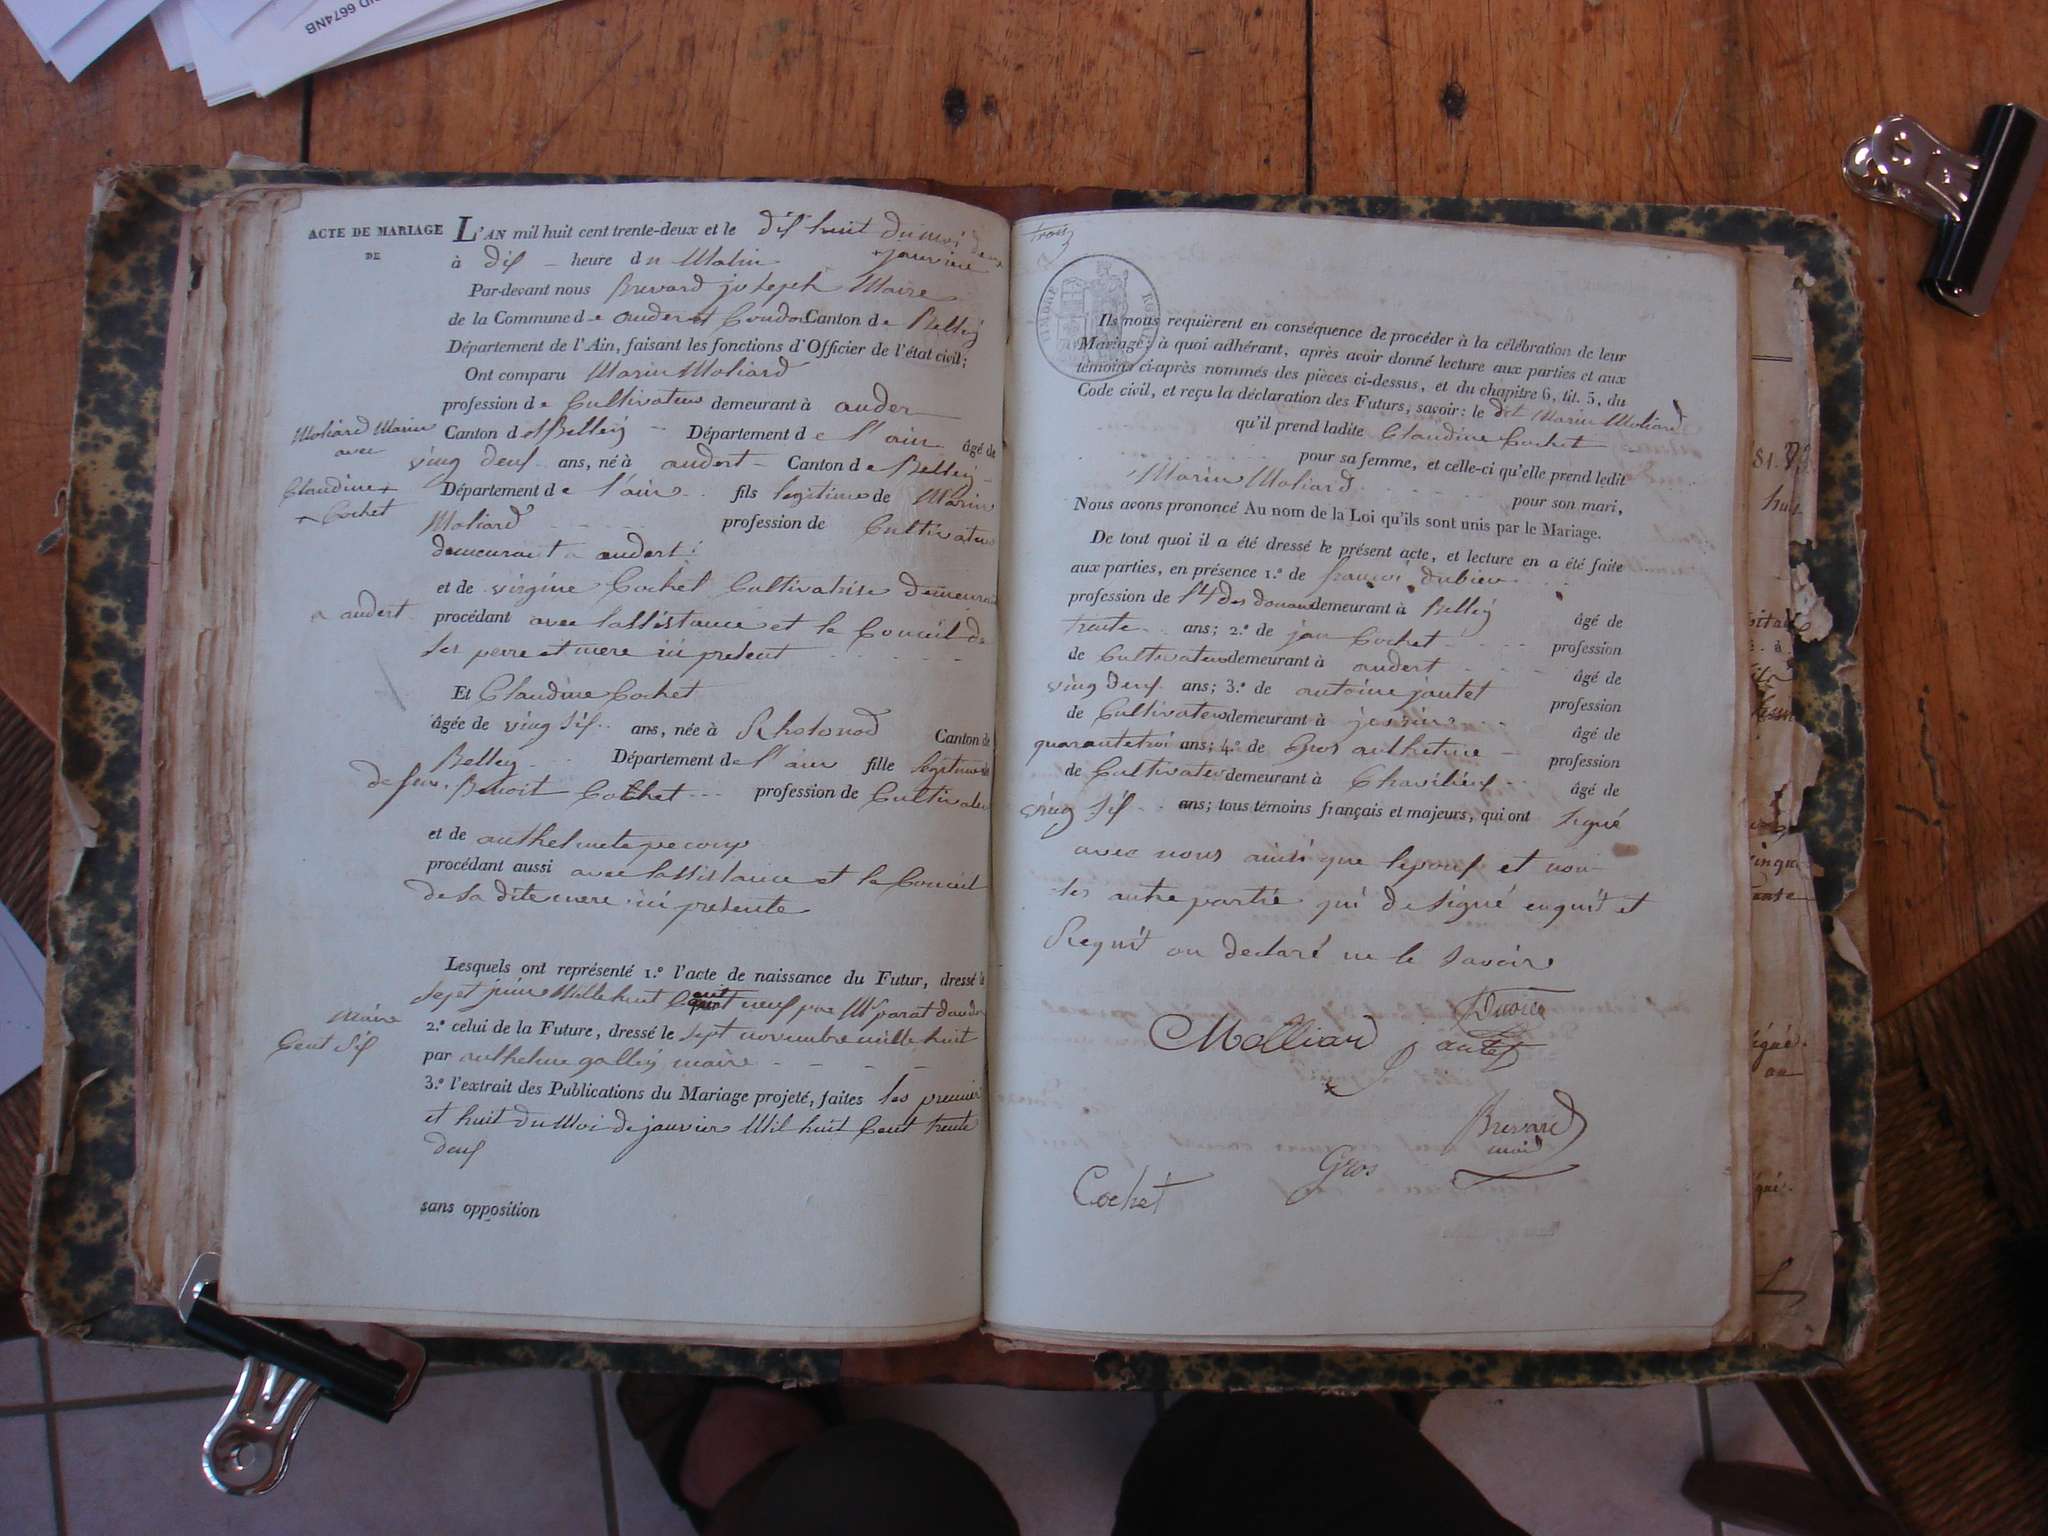 6674NB
ACTE DE MARIAGE
DE
Moliard Marin
avec
Claudine
Cochet
L'AN mil huit cent trente-deux et le dis huit du moi de
janvier
à dis heure du Matin
Par-devant nous Brevard joseph Maire
de la Commune de andert Condon Canton de Belley
Département de l'Ain, faisant les fonctions d'Officier de l'état civil;
Ont comparu Marin Moliard
profession de Cultivateur demeurant à ander
Canton de Belley Département de l'ain âgé de
ving deus ans, né à andert Canton de Belley
Département de l'ain fils legitime de Marin
Moliard profession de Cultivateur
demeurant a andert
et de virgine Cochet Cultivatrise demeurant
a andert procédant avec lassistance et le Conceil de
ses perre et mere ici present
Et Claudine Cochet
âgée de ving sis ans, née à Rhotonod Canton de
Belley Département de l'ain fille legitime
de feu Benoit Cochet profession de Cultivateur
et de
procédant aussi avec lassistance et le Conceil
de sa dite mere ici presente
Lesquels ont représenté 1.º l'acte de naissance du Futur, dressé le
sept juin Mille huit Cent neuf par Mr parat dander
Maire
2.º celui de la Future, dressé le sept novembre mille huit
Cent sis
par anthelme galley maire
3.º l'extrait des Publications du Mariage projeté, faites les premier
et huit du Moi de janvier Mil huit Cent trente
deus
sans opposition
trois
TIMBRE ROYAL
Ils nous requièrent en conséquence de procéder à la célébration de leur
Mariage; à quoi adhérant, après avoir donné lecture aux parties et aux
témoins ci-après nommés des pièces ci-dessus, et du chapitre 6, tit. 5, du
Code civil, et reçu la déclaration des Futurs, savoir: le dit Marin Moliard
qu'il prend ladite Claudine Cochet
pour sa femme, et celle-ci qu'elle prend ledit
Marin Moliard pour son mari,
Nous avons prononcé Au nom de la Loi qu'ils sont unis par le Mariage.
De tout quoi il a été dressé le présent acte, et lecture en a été faite
aux parties, en présence 1.º de françoi dubien
profession de Lt des douane demeurant à Belley âgé de
trente ans; 2.º de jan Cochet profession
de Cultivateur demeurant à andert âgé de
ving deus ans; 3.º de antoine jantet profession
de Cultivateur demeurant à âgé de
quarante troi ans; 4.º de Gros anthelme profession
de Cultivateur demeurant à Chavilieu âgé de
ving sis ans; tous témoins français et majeurs, qui ont signé
avec nous ainsi que lepous et non
les autre partie qui de signé enquit et
Requit on declaré ne le savoire
Molliard jantet
Brevard
maire
Gros
Cochet